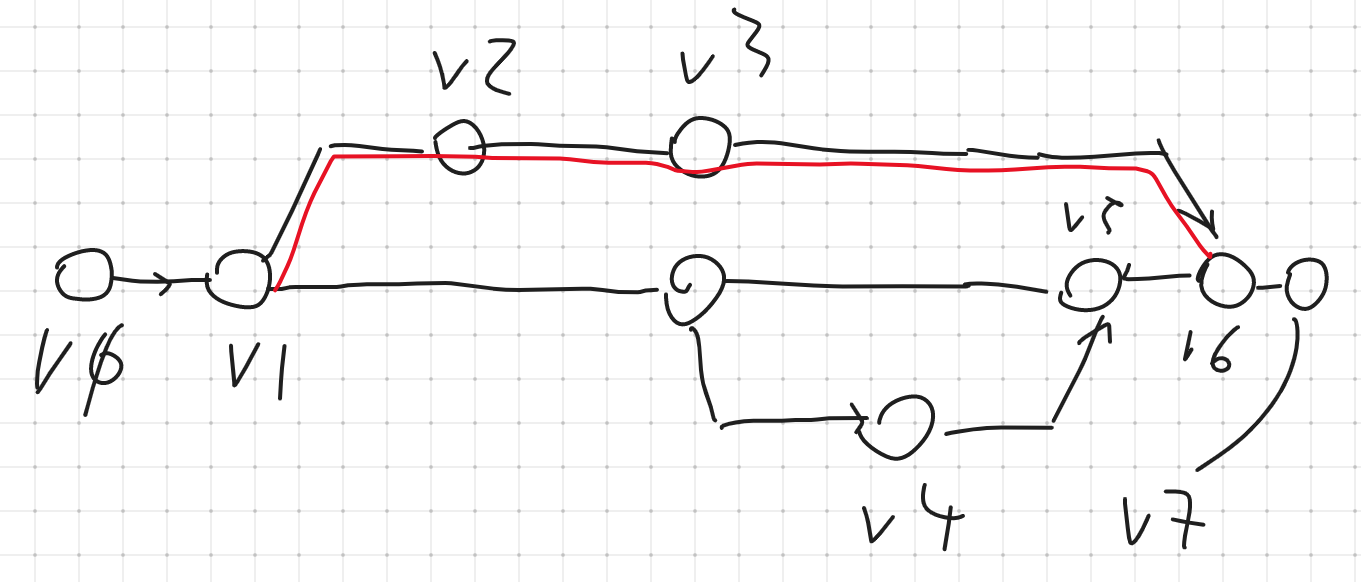 v2
v3
v5
V0
V1
v6
v4
v7